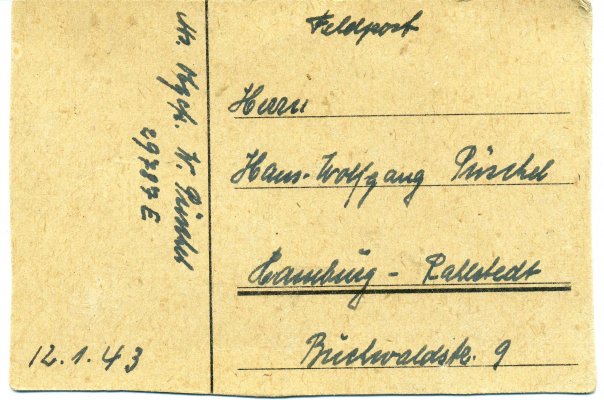 Feldpost
Herrn
Hans-Wolfgang Püschel
Hamburg - Rahlstedt
Buchwaldstr. 9
W. Püschel
29787 E
12.1.43